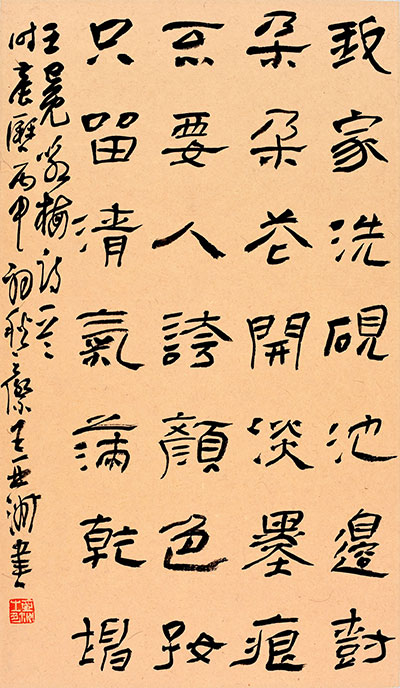 我家洗硯池邊樹
朵朵花開淡墨痕
不要人誇顏色好
只留清氣滿乾坤
王冕梅詩一首
時農曆丙申初秋亞洲書